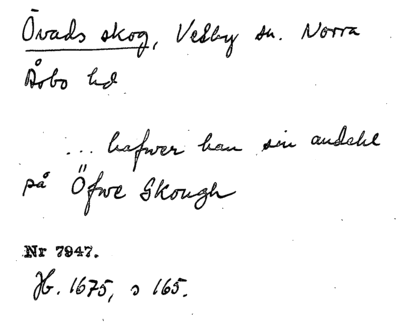 Övads skog, Vedby sn. Norra
Åsbo hd
... hafwer han sin andehl
på Öfwe Skough
Nr 7947.
Jb. 1675, s 165.